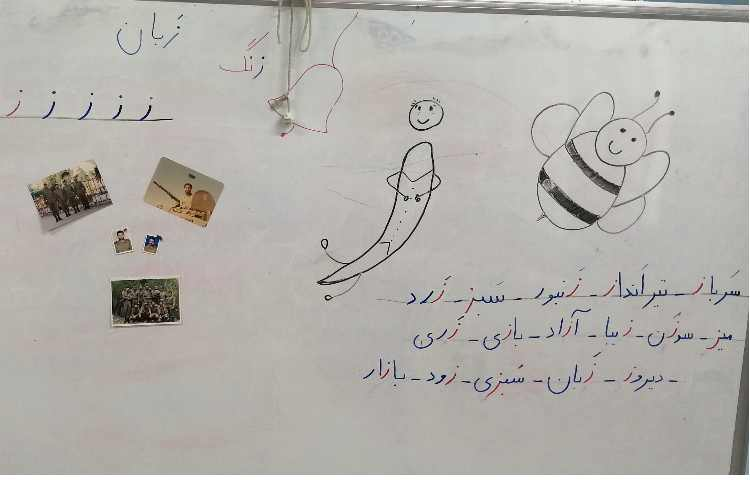 زَبان
زنگ
ز ز ز ز ز
سَرباز - تیراَنداز - زَنبور - سَبز - زَرد
میز - سوزَن - زیبا - آزاد - بازی - زَری
- دیروز - زَبان - سَبزی - زود - بازار